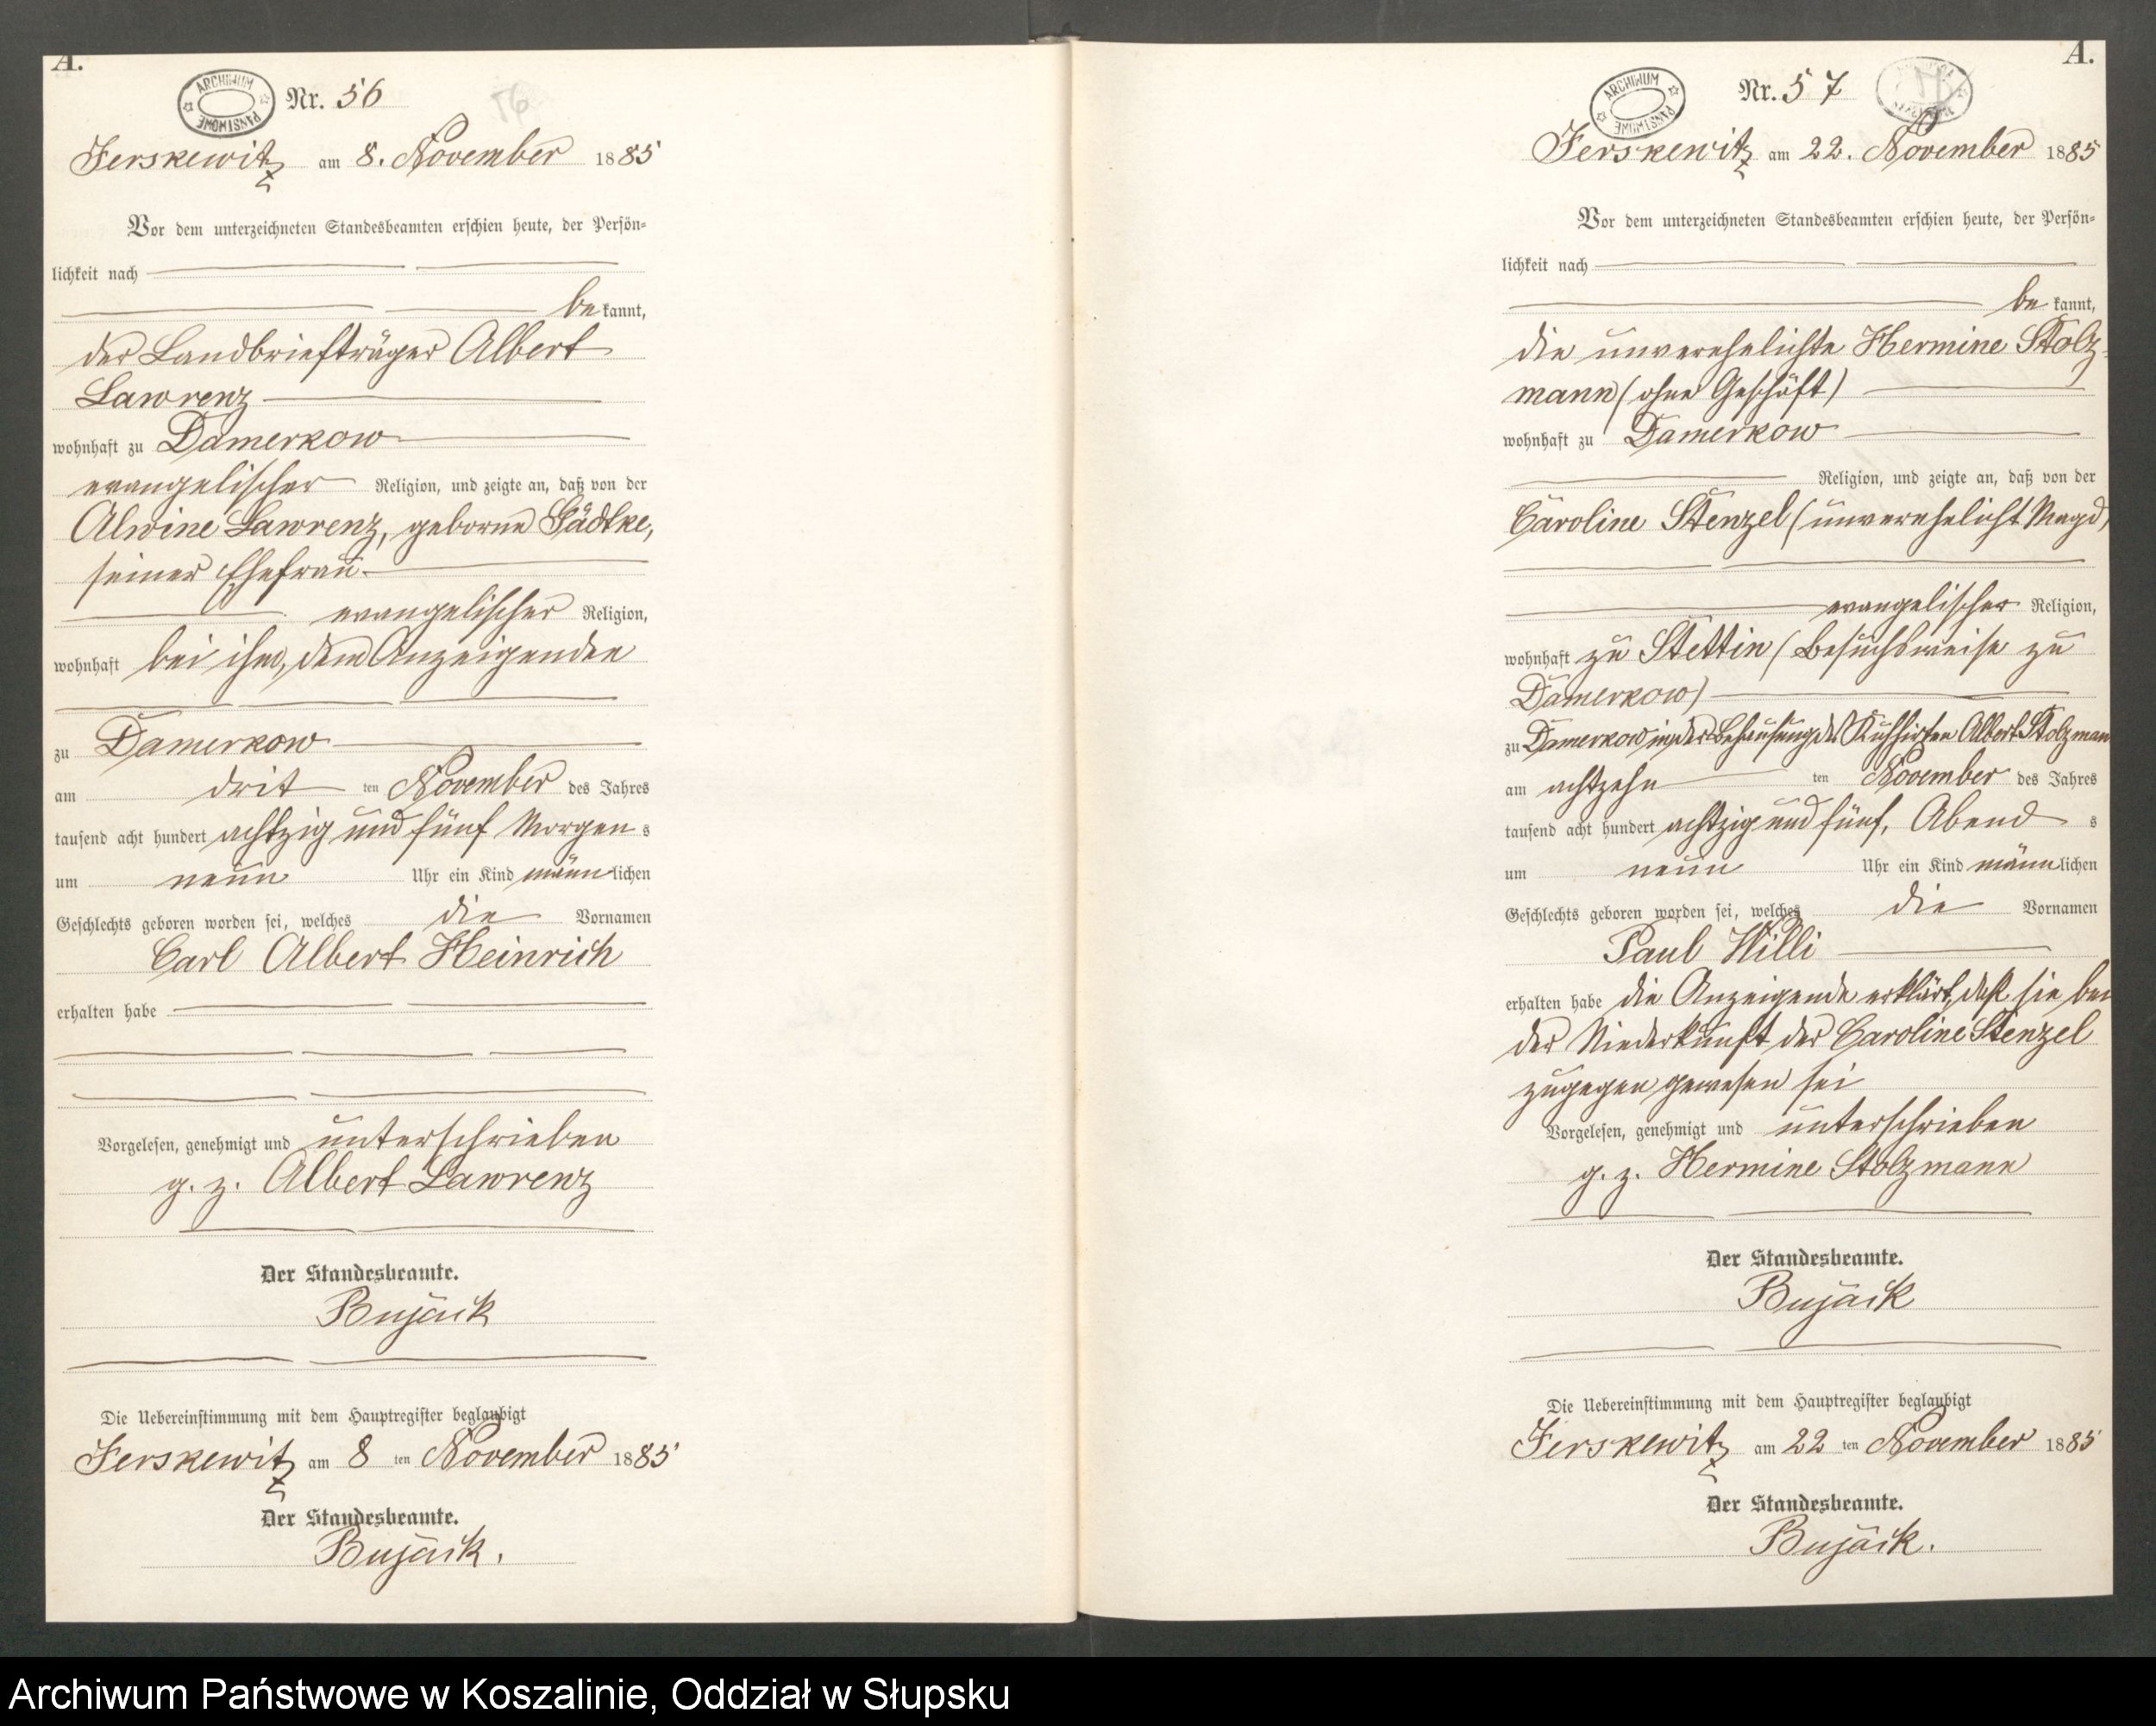 A.
ARCHIWUM PAŃSTWOWE
Nr. 56
56
Jerskewitz am 8. November 1885
Vor dem unterzeichneten Standesbeamten erschien heute, der Persön-
lichkeit nach
be kannt,
der Landbriefträger Albert
Lawrenz
wohnhaft zu Damerkow
evangelischer Religion, und zeigte an, daß von der
Alwine Lawrenz, geborne Gädtke,
seiner Ehefrau
evangelischer Religion,
wohnhaft bei ihm, dem Anzeigenden
zu Damerkow
am dritten November des Jahres
tausend acht hundert achtzig und fünf Morgens
um neun Uhr ein Kind männlichen
Geschlechts geboren worden sei, welches die Vornamen
Carl Albert Heinrich
erhalten habe
Vorgelesen, genehmigt und unterschrieben
g. z. Albert Lawrenz
Der Standesbeamte.
Bujack
Die Uebereinstimmung mit dem Hauptregister beglaubigt
Jerskewitz am 8 ten November 1885
Der Standesbeamte.
Bujack.
A.
ARCHIWUM PAŃSTWOWE
Nr. 57
Jerskewitz am 22. November 1885
Vor dem unterzeichneten Standesbeamten erschien heute, der Persön-
lichkeit nach
be kannt,
die unverehelichte Hermine Stolz-
mann (ohne Geschäft)
wohnhaft zu Damerkow
Religion, und zeigte an, daß von der
Caroline Stenzel (unverehelicht Magd)
evangelischer Religion,
wohnhaft zu Stettin (besuchsweise zu
Damerkow)
zu Damerkow in der Behausung des Kuhhirten Albert Stolzmann
am achtzehn ten November des Jahres
tausend acht hundert achtzig und fünf, Abend s
um neun Uhr ein Kind männlichen
Geschlechts geboren worden sei, welches die Vornamen
Paul Willi
erhalten habe die Anzeigende erklärt, daß sie bei
der Niederkunft der Caroline Stenzel
zugegen gewesen sei
Vorgelesen, genehmigt und unterschrieben
g. z. Hermine Stolzmann
Der Standesbeamte.
Bujack
Die Uebereinstimmung mit dem Hauptregister beglaubigt
Jerskewitz am 22 ten November 1885
Der Standesbeamte.
Bujack.
Archiwum Państwowe w Koszalinie, Oddział w Słupsku